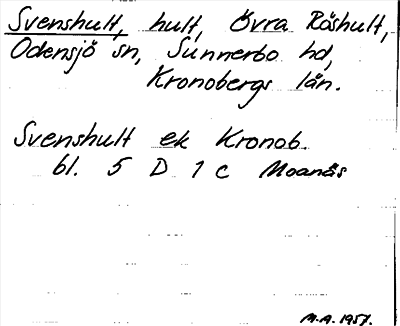 Svenshult, hult, Övra Röshult,
Odensjö sn, Sunnerbo hd,
Kronobergs län.
Svenshult ek Kronob.
bl. 5 D 1 c Moanäs
M.A. 1957.